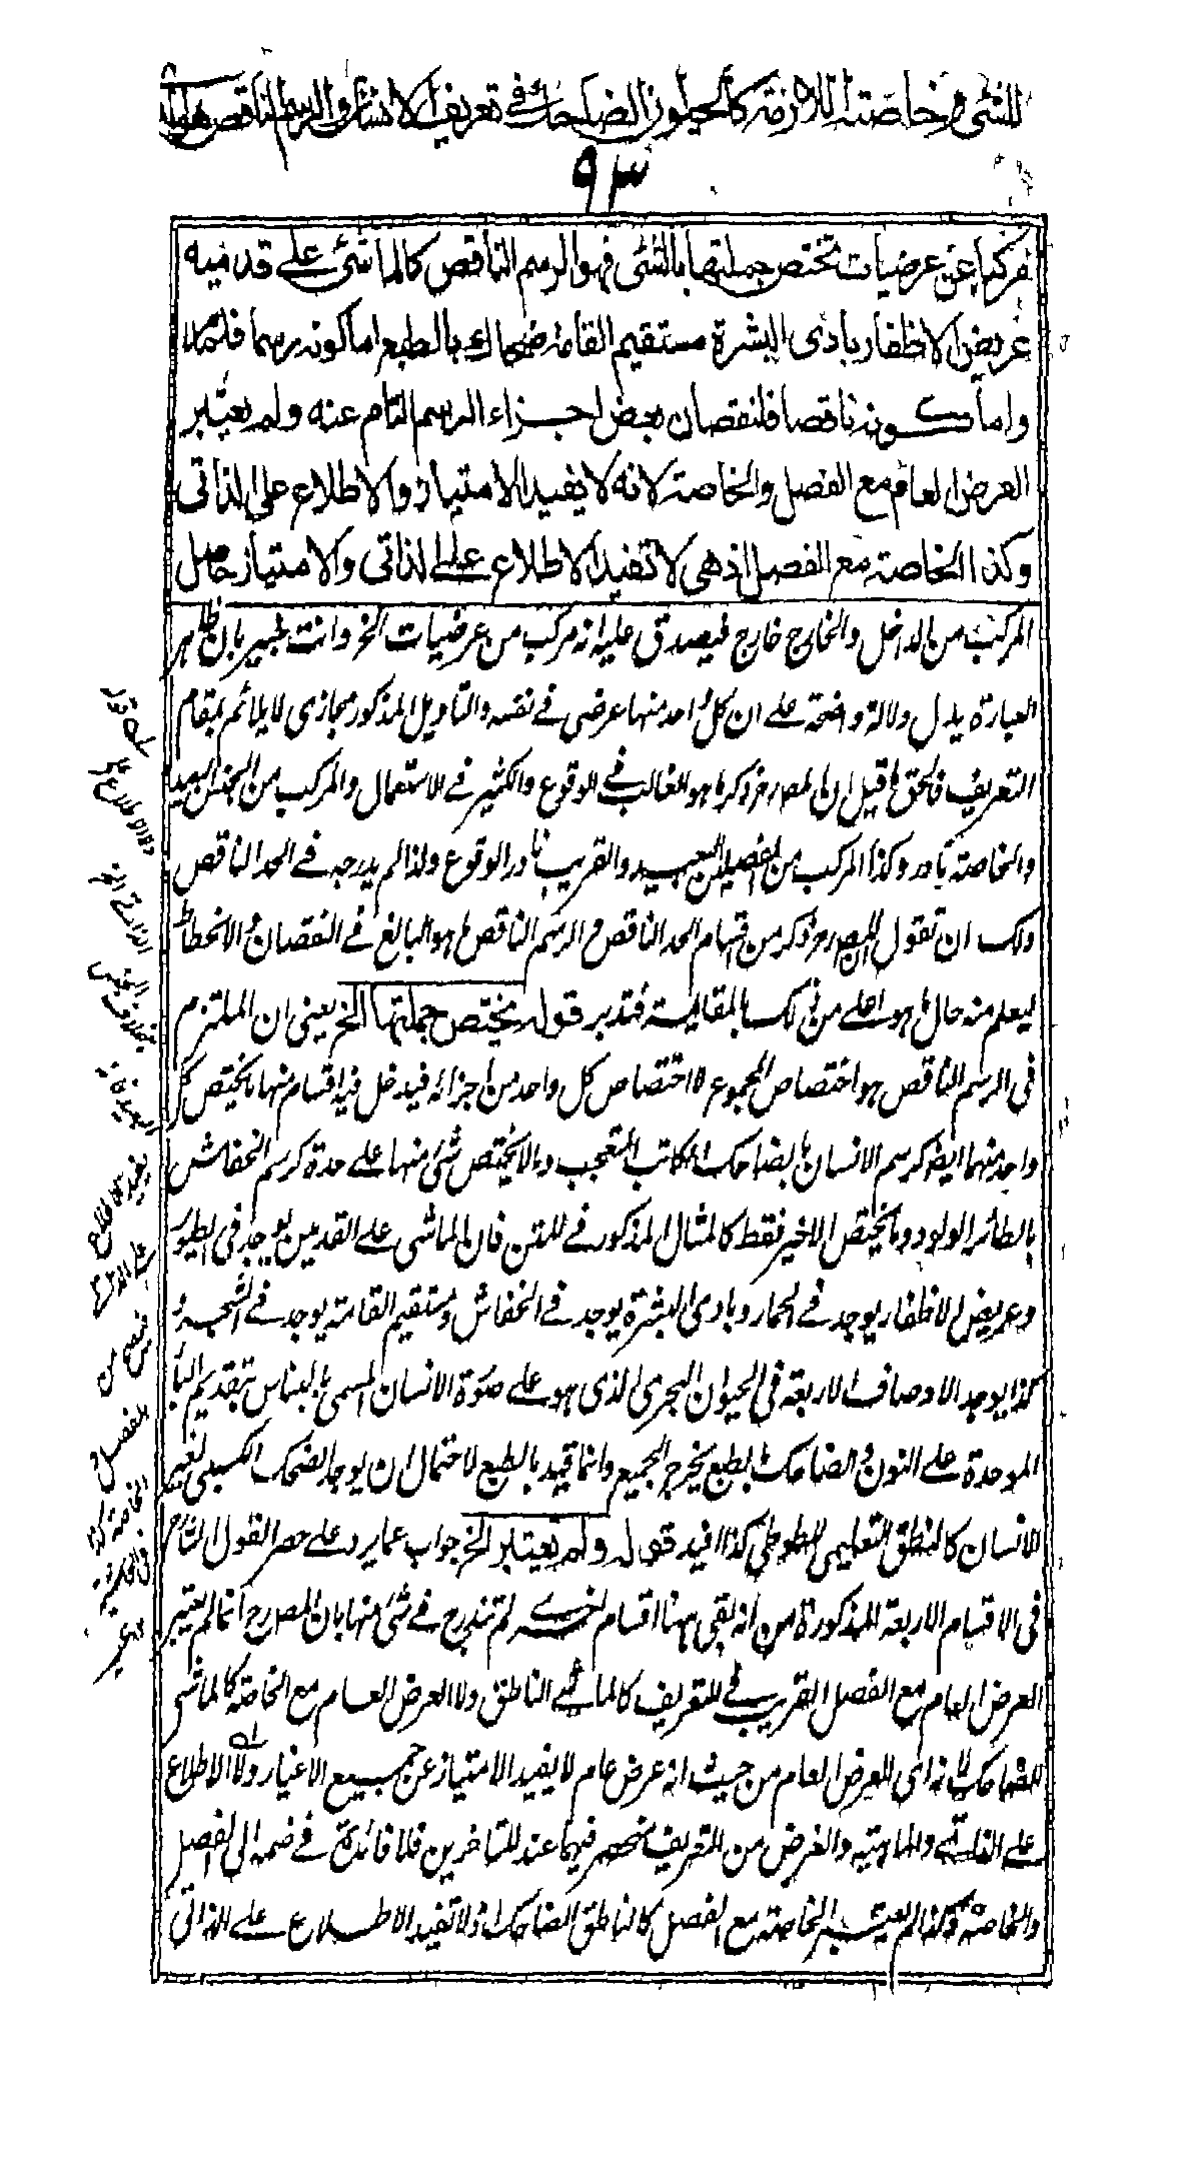 للشئ وخاصته اللازمة كالحيوان الضاحك في تعريف الانسان والرسم الناقص هو
٩٣
مركبا عن عرضيات تختص جملتها بالشئ فهو الرسم الناقص كالماشي على قدميه
عريض الاظفار بادي البشرة مستقيم القامة ضحاك بالطبع اما كونه رسما فلما
واما كونه ناقصا فلنقصان بعض اجزاء الرسم التام عنه ولم يعتبر
العرض العام مع الفصل والخاصة لانه لا يفيد الامتياز والاطلاع على الذاتى
وكذا الخاصة مع الفصل اذ هى لا تفيد الاطلاع على الذاتى والامتياز حاصل
المركب من الداخل والخارج خارج فيصدق عليه انه مركب من عرضيات الخ وانت خبير بان ظاهر
العبارة يدل دلالة واضحة على ان كل واحد منها عرضى فى نفسه والتاويل المذكور مجازى لا يلائم بمقام
التعريف فالحق ما قيل ان المصرح ذكر ما هو الغالب فى الوقوع والكثير فى الاستعمال والمركب من الجنس البعيد
والخاصة نادر وكذا المركب من الفصلين البعيد والقريب نادر الوقوع ولذا لم يدرجه فى الحد الناقص
ولك ان تقول ان المصرح ذكر من اقسام الحد الناقص والرسم الناقص ما هو البالغ فى النقصان والانحطاط
ليعلم منه حال ما هو اعلى من ذلك بالمقايسة فتدبر قوله تختص جملتها الخ يعنى ان الملتزم
فى الرسم الناقص هو اختصاص المجموع لا اختصاص كل واحد من اجزائه فيدخل فيه اقسام منها ما يختص كل
واحد منهما ايضا كرسم الانسان بالضاحك الكاتب المتعجب وما لا يختص شئ منها على حدة كرسم الخفاش
بالطائر الولود وما يختص الاخير فقط كالمثال المذكور فى المتن فان الماشى على القدمين يوجد فى الطيور
وعريض الاظفار يوجد فى الحمار وبادى البشرة يوجد فى الخفاش ومستقيم القامة يوجد فى الشجر و
كذا يوجد الاوصاف الاربعة فى الحيوان البحرى الذى هو على صورة الانسان المسمى بالبناس بتقديم الباء
الموحدة على النون والضاحك بالطبع يخرج الجميع وانما قيد بالطبع لاحتمال ان يوجد الضحك الكسبى لغير
الانسان كالنطق التعليمى للطوطى كذا افيد قوله ولم يعتبر الخ جواب عما يرد على حصر القول الشارح
فى الاقسام الاربعة المذكورة من انه بقى ههنا اقسام اخرى لم تندرج فى شئ منها بان المصرح انما لم يعتبر
العرض العام مع الفصل القريب فى التعريف كالماشى الناطق ولا العرض العام مع الخاصة كالماشى
الضاحك لانه اى العرض العام من حيث انه عرض عام لا يفيد الامتياز عن جميع الاغيار ولا الاطلاع
على الذاتى والماهية والغرض من التعريف منحصر فيهما عند المتاخرين فلا فائدة فى ضمه الى الفصل
والخاصة وكذا لم يعتبر الخاصة مع الفصل كالناطق الضاحك اذ لا تفيد الاطلاع على الذاتى